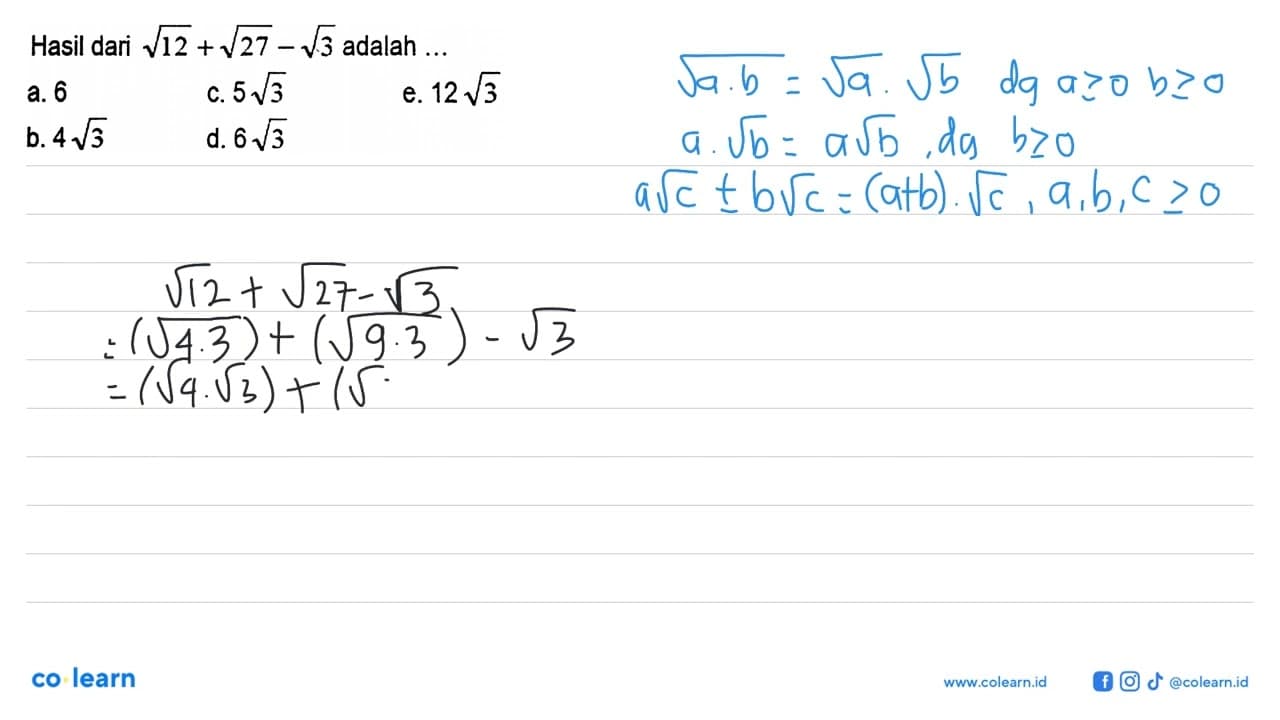 Hasil dari √12 + √27 − √3 adalah ...
a. 6 c. 5√3 e. 12√3
b. 4√3 d. 6√3
√a.b = √a . √b dg a≥0 b≥0
a . √b = a√b , dg b≥0
a√c ± b√c = (a+b) . √c , a,b,c ≥0
√12 + √27 - √3
= (√4.3) + (√9.3) - √3
= (√4.√3) + (√
co·learn
www.colearn.id @colearn.id